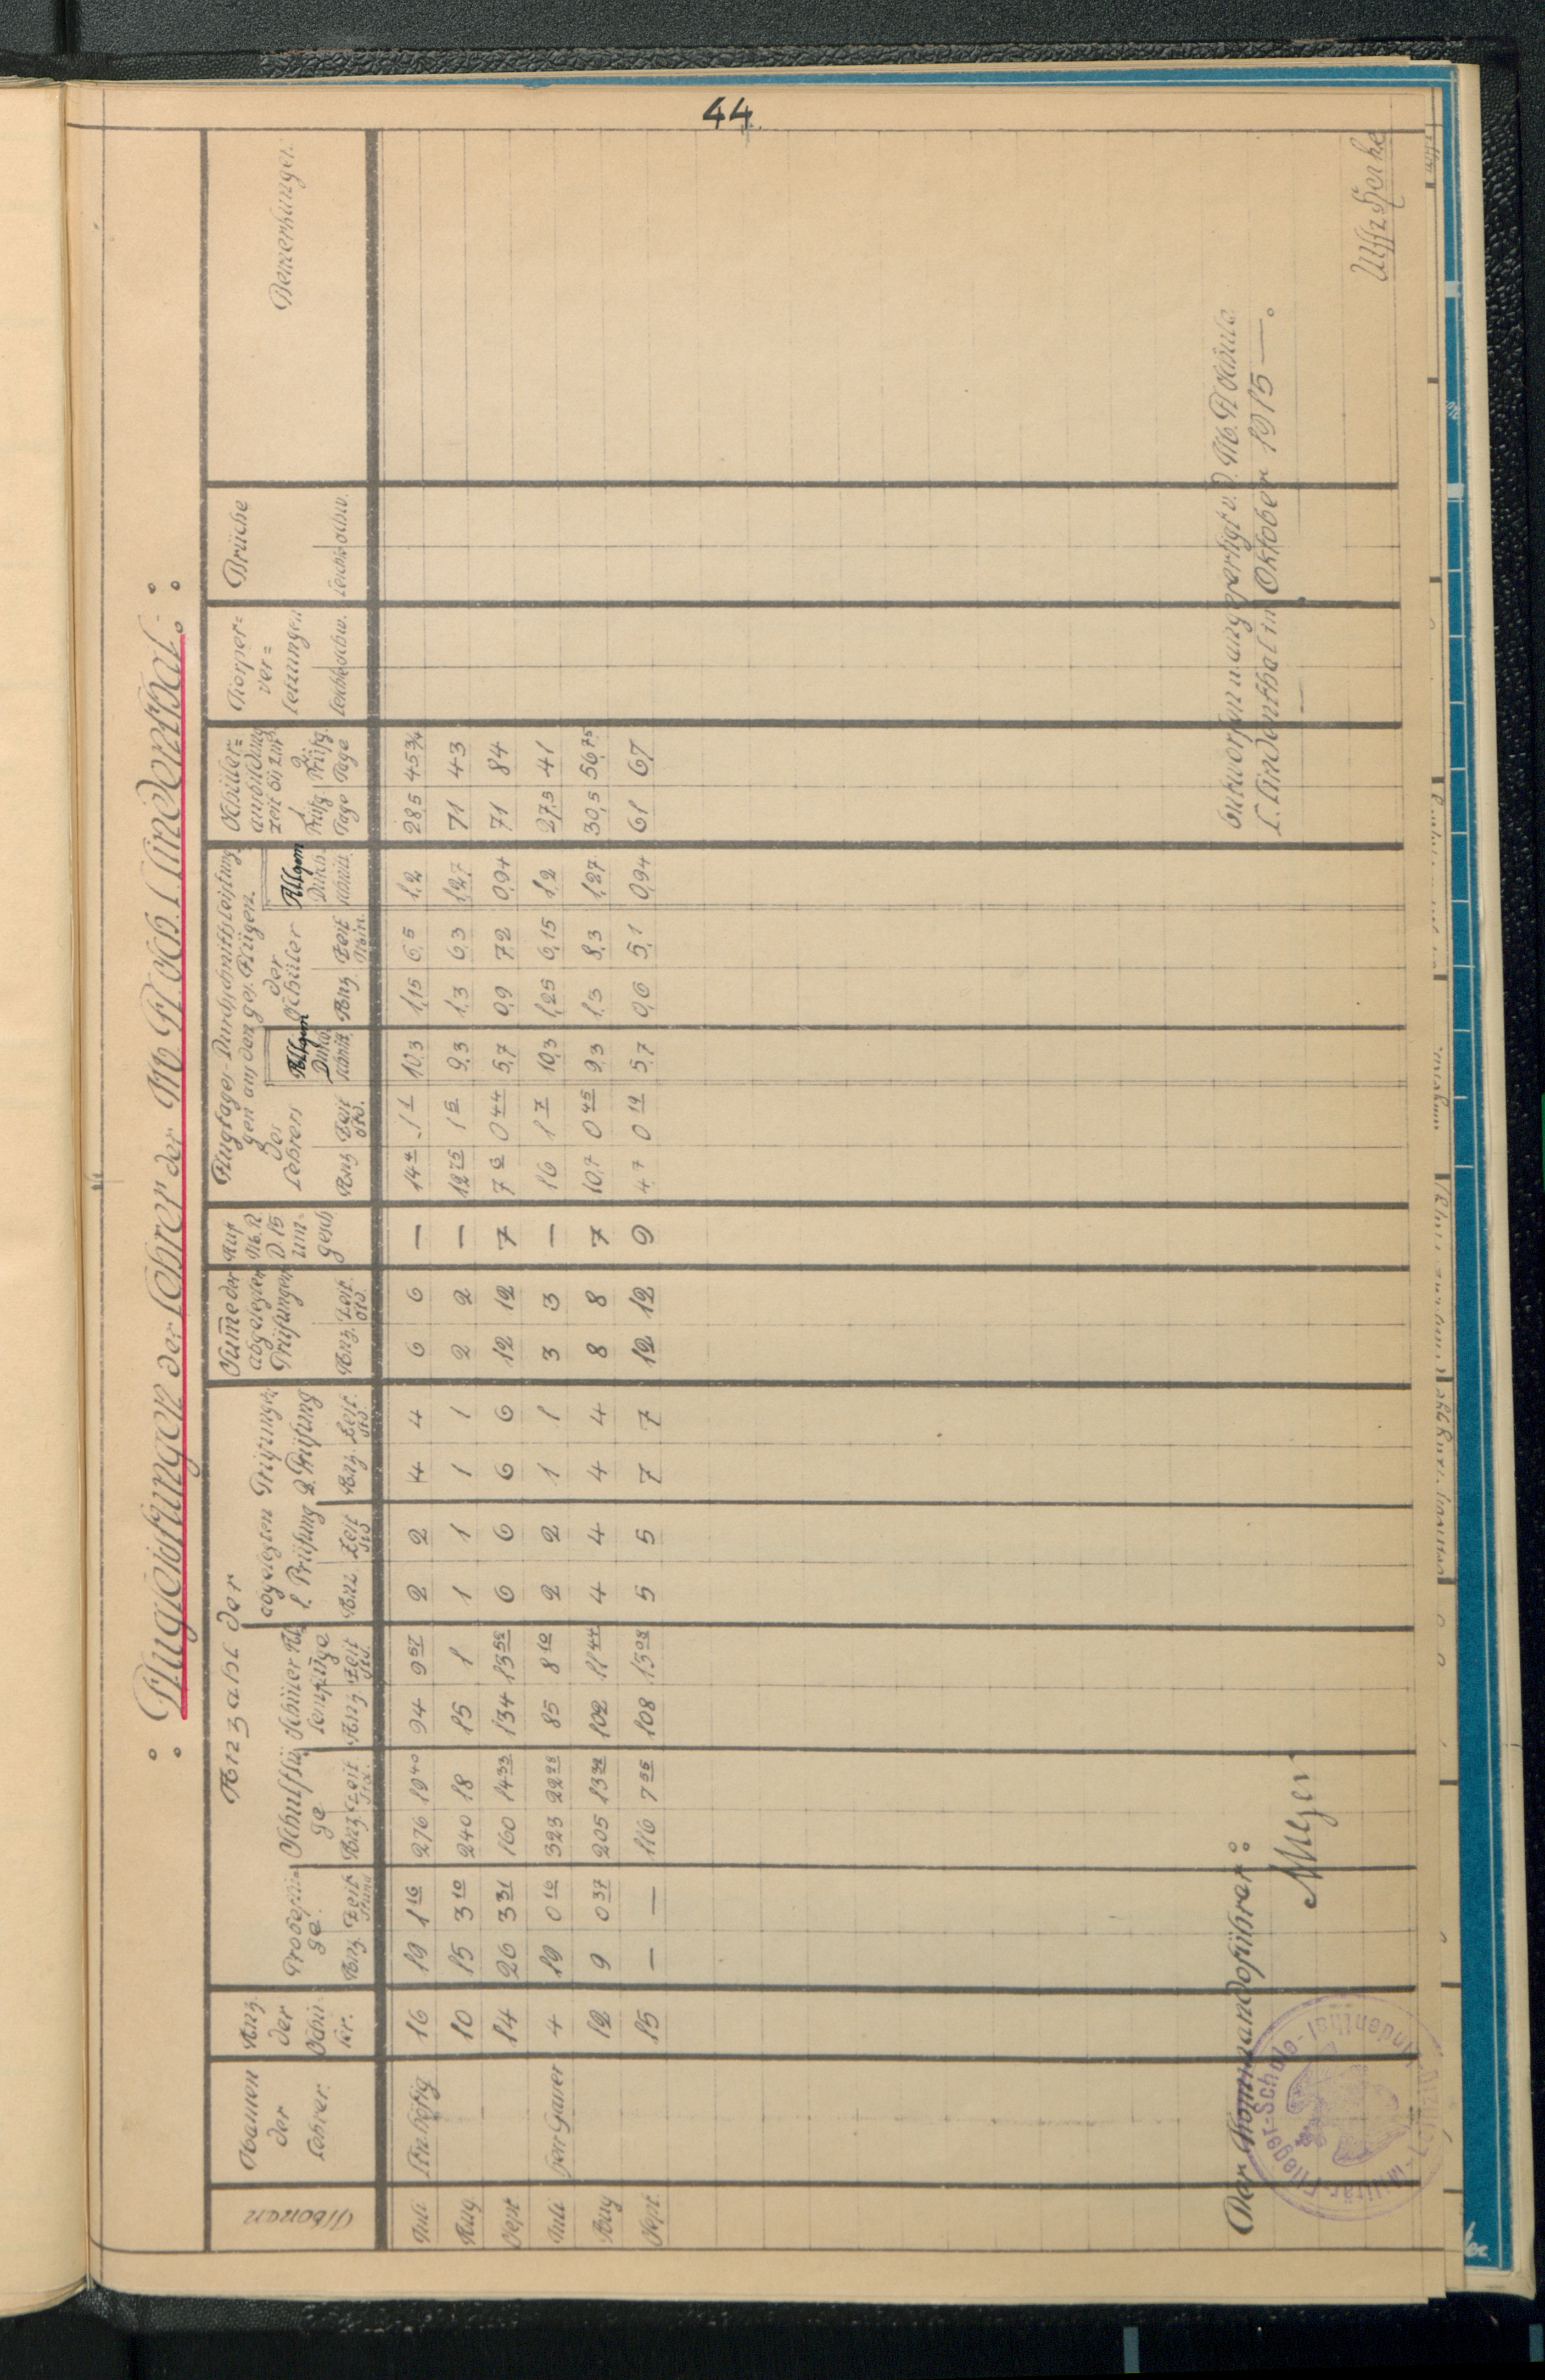 44
: Flugleistungen der Lehrer der M. Fl. Sch. L. Lindenthal. :
Monat
Namen der Lehrer
Anz. der Schüler.
Anzahl der
Probeflüge
Anz. Zeit Stund
Schulflüge
Anz. Zeit Std.
Schüler Alleinflüge
Anz. Zeit Std.
abgelegten Prüfungen
1. Prüfung
Anz. Zeit Std.
2. Prüfung
Anz. Zeit Std.
Summe der abgelegten Prüfungen
Anz. Zeit Std.
Auf M.R.D. 15 umgesch
Flugtages-Durchschnittsleistungen aus den ges. Flügen.
des Lehrers
Anz Zeit Std.
Allgem Durchschnitt.
der Schüler
Anz. Zeit Min.
Allgem Durchschnitt.
Schülerausbildungszeit bis zur
1. Prüfg. Tage
2. Prüfg. Tage
Körperverletzungen
Leichte schw.
Brüche
Leichte schw.
Bemerkungen.
Juli 16 19 1 16 276 19 40 94 9 57 2 2 4 4 6 6 — 14 4 1 1 10,3 1,15 6,5 1,2 28,5 45 3/4
Aug 10 15 3 10 240 18 15 1 1 1 1 1 2 2 — 12 75 1 5 9,3 1,3 6,3 1,27 71 43
Sept 14 26 3 31 160 14 33 134 13 52 6 6 6 6 12 12 7 7 6 0 44 5,7 0,9 7,2 0,94 71 84
Juli Herr Ganer 4 19 0 16 323 22 28 85 8 10 2 2 1 1 3 3 — 16 1 7 10,3 1,25 6,15 1,2 27,5 41
Aug 12 9 0 37 205 13 32 102 11 44 4 4 4 4 8 8 7 10,7 0 45 9,3 1,3 8,3 1,27 30,5 56,75
Sept. 15 — — 116 7 56 108 13 02 5 5 7 7 12 12 9 4,7 0 19 5,7 0,6 5,1 0,94 61 67
Der Kommandoführer:
Entworfen u. angefertigt v. d. M. Fl. Schule
L. Lindenthal im Oktober 1915 —.
Militär-Flieger-Schule-Lindenthal-Leipzig